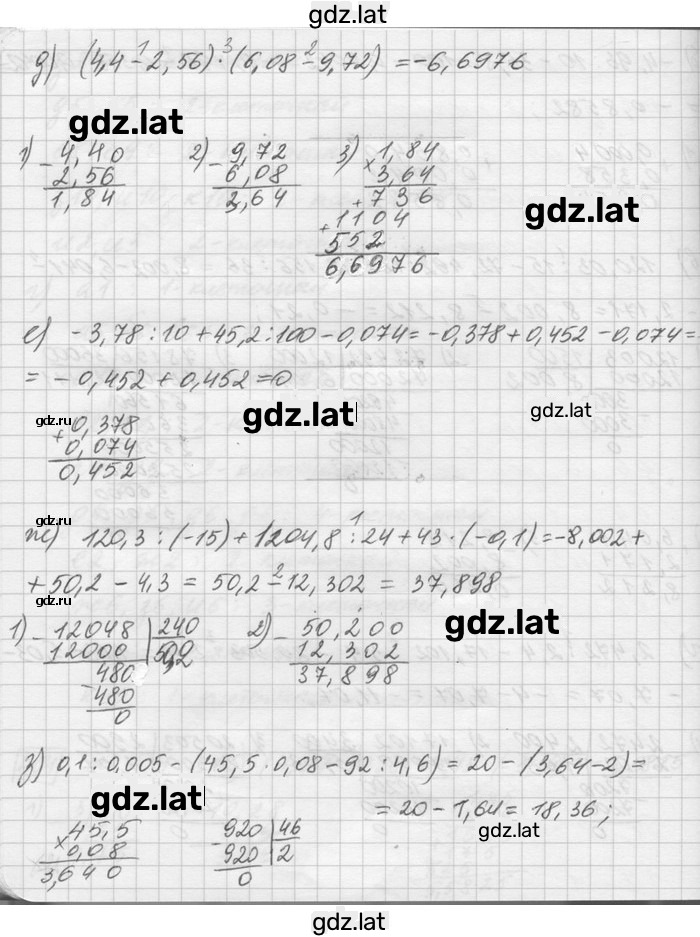 gdz.lat
д) (4,4 - 2,56) · (6,08 - 9,72) = -6,6976
gdz.lat
1) - 4,40
2,56
1,84
2) - 9,72
6,08
3,64
3) × 1,84
3,64
+ 736
+ 1104
552
6,6976
gdz.lat
е) - 3,78 : 10 + 45,2 : 100 - 0,074 = - 0,378 + 0,452 - 0,074 =
= - 0,452 + 0,452 = 0
gdz.lat
gdz.lat
gdz.ru
+ 0,378
0,074
0,452
gdz.ru
ж) 120,3 : (-15) + 1204,8 : 24 + 43 · (-0,1) = -8,002 +
+ 50,2 - 4,3 = 50,2 - 12,302 = 37,898
1) - 12048 | 240
12000 | 50,2
480
- 480
0
2) - 50,200
12,302
37,898
gdz.lat
з) 0,1 : 0,005 - (45,5 · 0,08 - 92 : 4,6) = 20 - (3,64 - 2) =
= 20 - 1,64 = 18,36;
gdz.lat
gdz.lat
× 45,5
0,08
3,640
- 920 | 46
920 | 2
0
gdz.lat